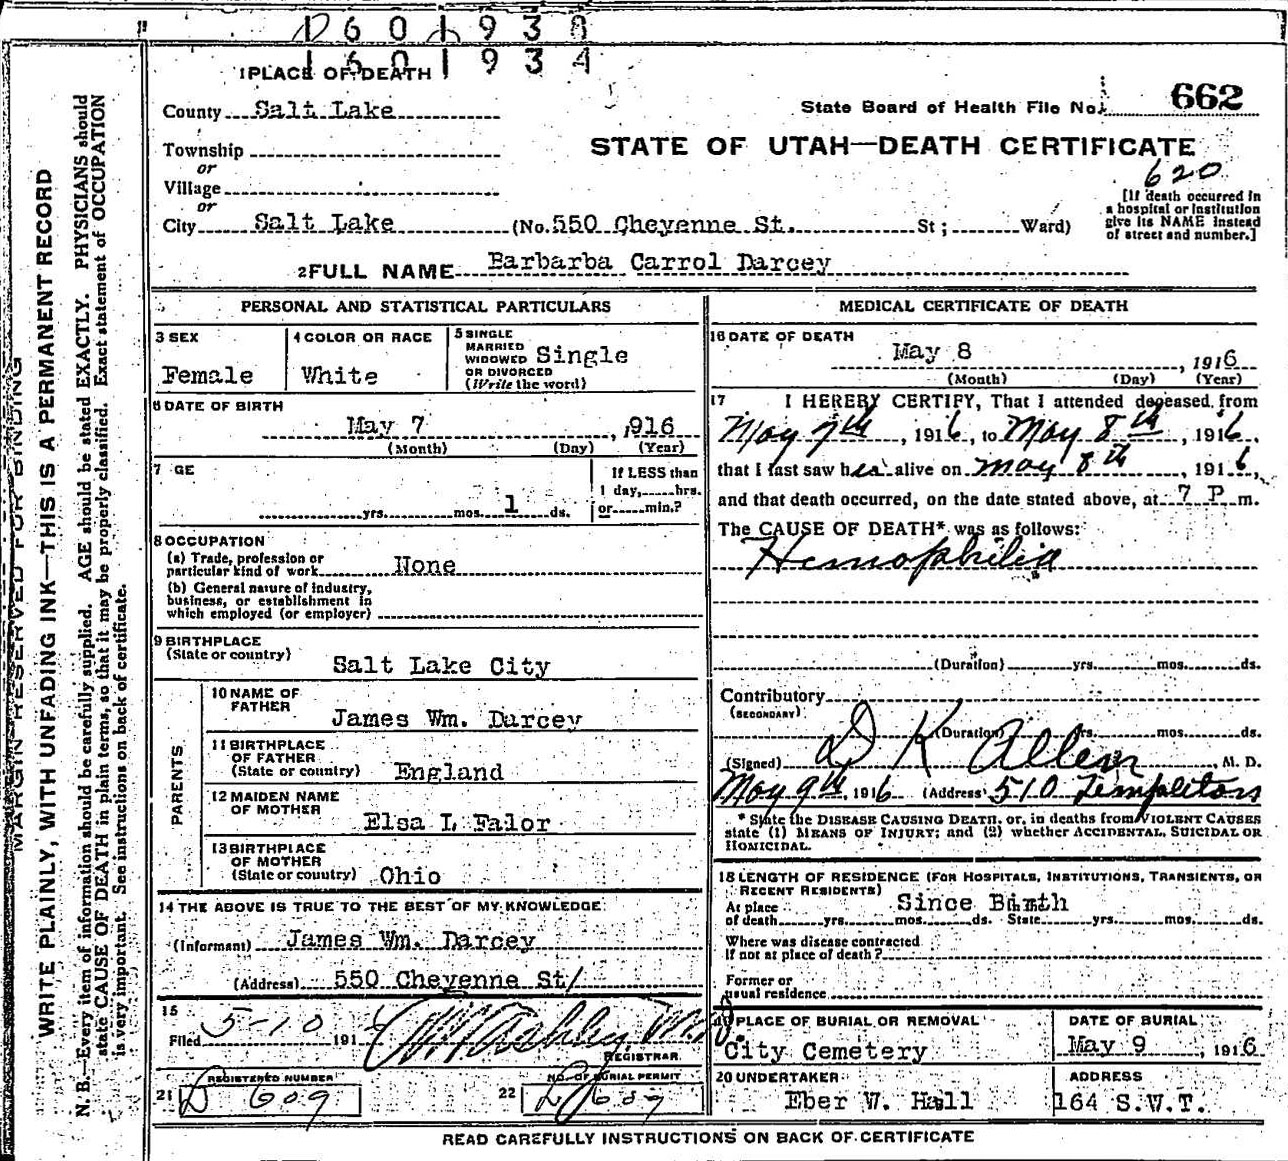 1601938
1601934
1 PLACE OF DEATH
County Salt Lake
State Board of Health File No. 662
Township
or
Village
or
STATE OF UTAH—DEATH CERTIFICATE
620
[If death occurred in
a hospital or institution
give its NAME instead
of street and number.]
City Salt Lake (No. 550 Cheyenne St. St; Ward)
2 FULL NAME Barbarba Carrol Darcey
PERSONAL AND STATISTICAL PARTICULARS
3 SEX
Female
4 COLOR OR RACE
White
5 SINGLE
MARRIED
WIDOWED
OR DIVORCED
(Write the word)
Single
6 DATE OF BIRTH
May 7, 916
(Month) (Day) (Year)
7 GE
yrs. mos. 1 ds.
If LESS than
1 day, hrs.
or min.?
8 OCCUPATION
(a) Trade, profession or
particular kind of work None
(b) General nature of industry,
business, or establishment in
which employed (or employer)
9 BIRTHPLACE
(State or country) Salt Lake City
PARENTS
10 NAME OF
FATHER
James Wm. Darcey
11 BIRTHPLACE
OF FATHER
(State or country) England
12 MAIDEN NAME
OF MOTHER
Elsa L Falor
13 BIRTHPLACE
OF MOTHER
(State or country) Ohio
14 THE ABOVE IS TRUE TO THE BEST OF MY KNOWLEDGE
(Informant) James Wm. Darcey
(Address) 550 Cheyenne St/
15
Filed 5-10 191
REGISTRAR
21 REGISTERED NUMBER
D 609
22 NO. OF BURIAL PERMIT
609
MEDICAL CERTIFICATE OF DEATH
16 DATE OF DEATH
May 8, 1916
(Month) (Day) (Year)
17 I HEREBY CERTIFY, That I attended deceased from
May 7th, 1916, to May 8th, 1916,
that I last saw her alive on May 8th, 1916,
and that death occurred, on the date stated above, at 7 P m.
The CAUSE OF DEATH* was as follows:
Hemophilia
(Duration) yrs. mos. ds.
Contributory
(SECONDARY)
(Duration) yrs. mos. ds.
(Signed) D K Allen, M. D.
May 9th, 1916 (Address) 510 Templeton
* State the DISEASE CAUSING DEATH, or, in deaths from VIOLENT CAUSES
state (1) MEANS OF INJURY; and (2) whether ACCIDENTAL, SUICIDAL OR
HOMICIDAL.
18 LENGTH OF RESIDENCE (FOR HOSPITALS, INSTITUTIONS, TRANSIENTS, OR
RECENT RESIDENTS)
Since Birth
At place
of death yrs. mos. ds. State yrs. mos. ds.
Where was disease contracted
If not at place of death?
Former or
usual residence
19 PLACE OF BURIAL OR REMOVAL
City Cemetery
DATE OF BURIAL
May 9, 1916
20 UNDERTAKER
Eber W. Hall
ADDRESS
164 S.W.T.
READ CAREFULLY INSTRUCTIONS ON BACK OF CERTIFICATE
MARGIN RESERVED FOR BINDING
WRITE PLAINLY, WITH UNFADING INK—THIS IS A PERMANENT RECORD
N. B.—Every item of information should be carefully supplied. AGE should be stated EXACTLY. PHYSICIANS should
state CAUSE OF DEATH in plain terms, so that it may be properly classified. Exact statement of OCCUPATION
is very important. See instructions on back of certificate.